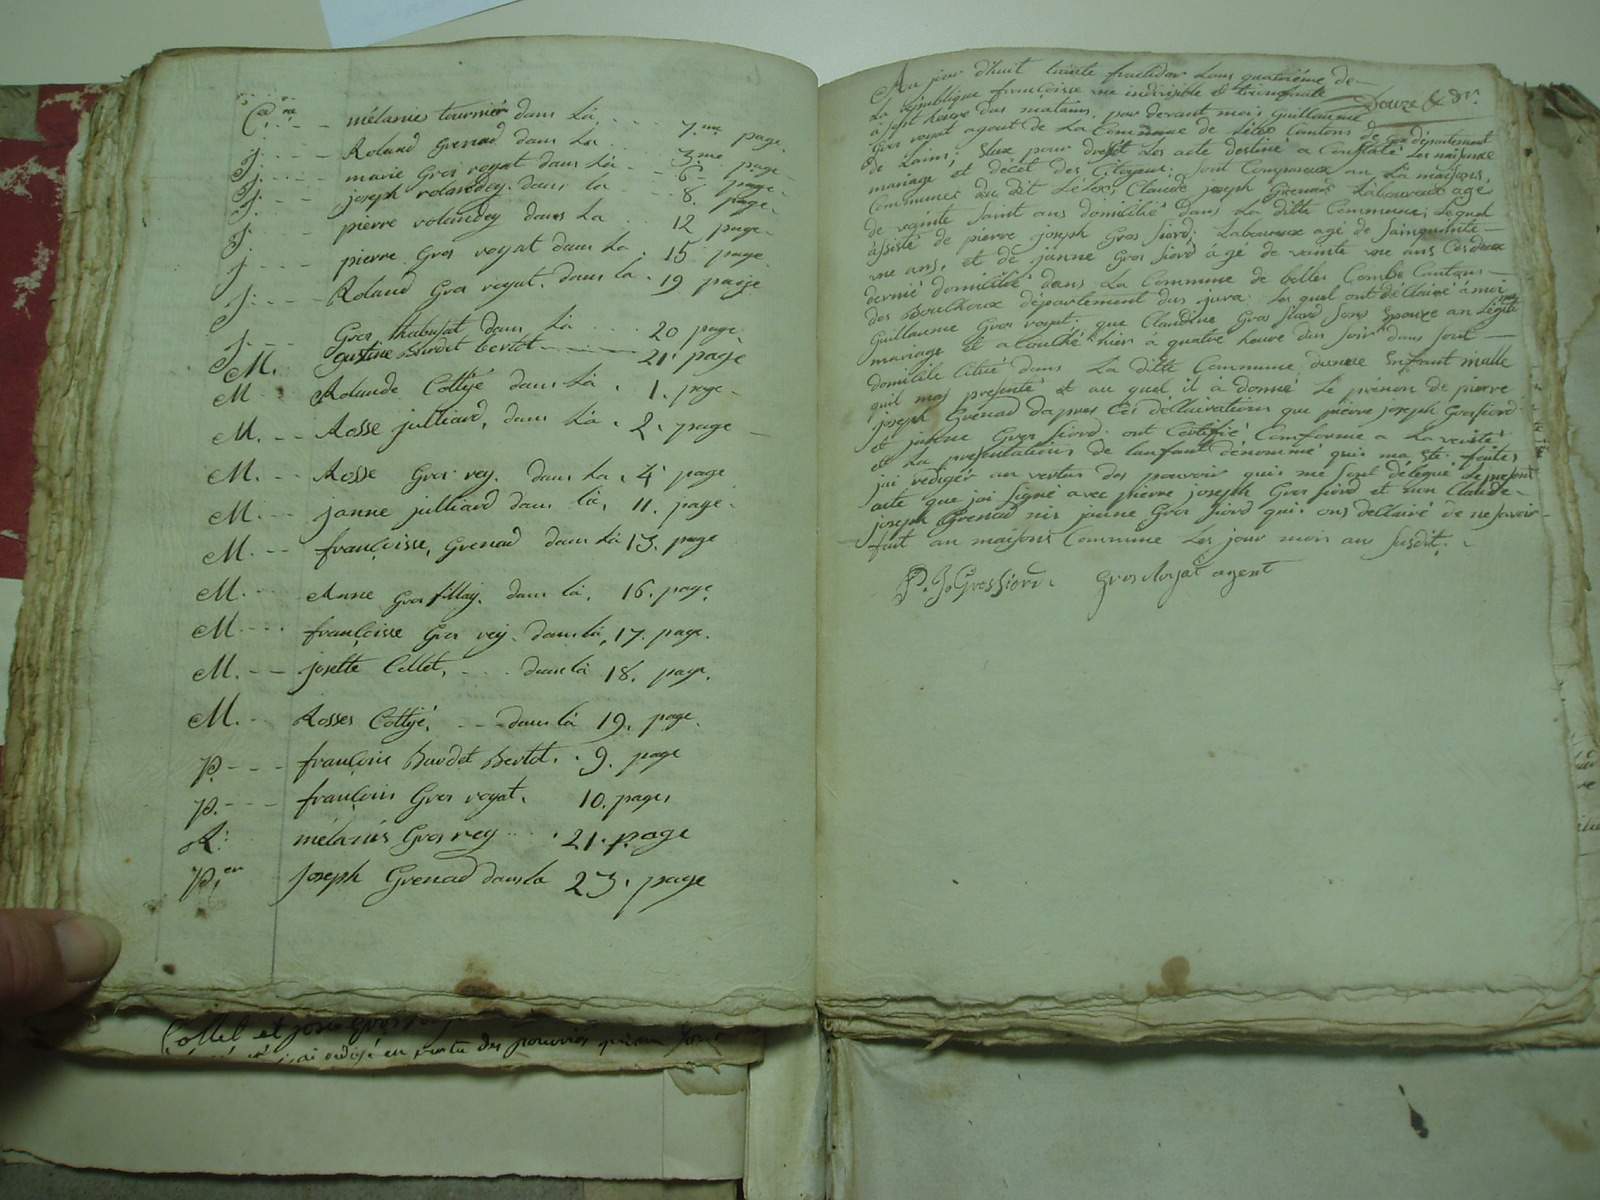 mélanie tournier dans là, 7.me page.
J. Roland Grenad dans La 3me page
J. marie Gros royat dans Là 6. page
J. joseph rolandey. dans la 8. page.
J. pierre rolandey dans La 12 page
J pierre Gros royat dans La. 15 page
J. Roland Gros royat. dans la. 19 paige
J. Gros dans Là 20 page
M. 21. page
M Rolande Collijé dans Là. 1. page
M. Rosse julliard, dans Là. 2. page
M. Rosse Gros rey. dans La. 4 page
M. janne julliard dans là, 11. page.
M. françoisse, Grenad dans Là 13. page
M. Anne Gros dans là, 16. page,
M françoisse Gros rey. dans là, 17. page.
M. josette Collet, dans là 18. page.
M. Rosses Collijé dans là 19. page.
P. françois Baudet Bertet. 9. page
P. françois Gros royat. 10. pages
R: mélanis Gros rey 21. page
P,er Joseph Grenad dans la 23. page
Au jour d'huit trante fructidor Lans quatriéme de
La Republique françoisse une indivisible et
à sept heure das matains, par devant moi Guillaume Douze &
Gros royat agent de La Commune de Lélex Cantons de département
de Lains; Elux pour Les acte destiné a Constaté Les naisance
mariage et décet des Citoyens; sont Comparaux an La maisons,
Commune du dit Lélex, Claude joseph Grenad Laboureux agé
de vainte saint ans domicilié dans La ditte Commune; Lequel
assisté de pierre joseph Gros siord; Laboureux agé de sainquante
une ans, et de janne Gros siord âgé de vainte une ans Ces deux
dernié domicilié dans La Commune de belles Combe Cantons
des Bouchoux département dus jura. Les quel ont déllairé à moi
Guillaume Gros royat. que Claudine Gros siord sons Epouse an Légitime
mariage et acouché hier à quatre heure dus soir dans sont
domicile citué dans La ditte Commune dunne Enfant malle
quil mas presenté et au quel il à donné Le prénom de pierre
joseph Grenad dapres Les déllairations que pierre joseph Gros siord
et janne Gros siord. ont Certifié Comforme a La verité
et La presentations de lanfant dénommé qui ma été faites
jai redigér an vertus des pouvoir qui me sont délégué Le present
acte que jai signé avec pierre joseph Gros siord et non Claude
joseph Grenad nis janne Gros siord qui ons dellairé de ne savoir
fait an maisons Commune Les jour mois an susdit.
P. J. Grossiord. Gros Royat agent
Collet et
redigé en vertu des pouvoirs